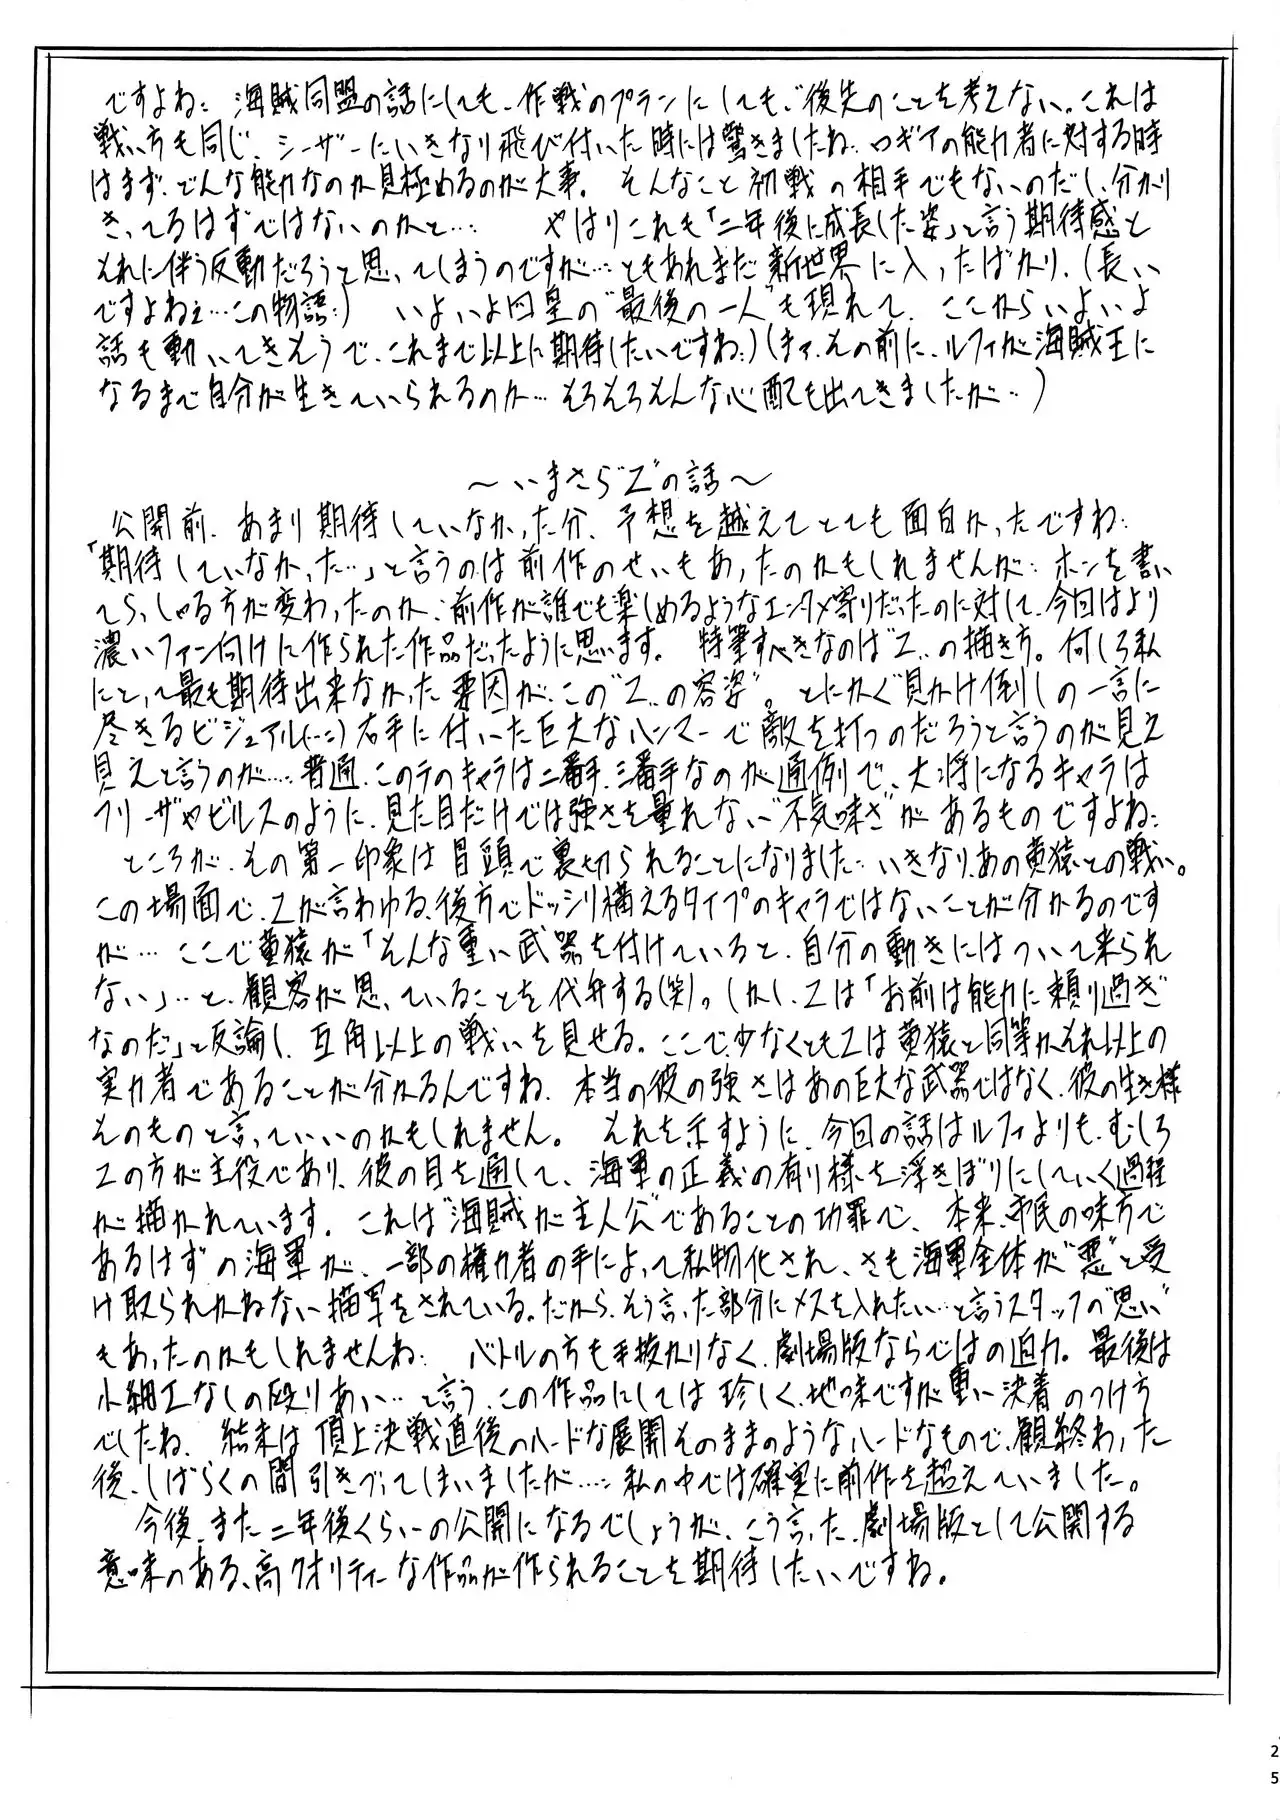 ですよね‥ 海賊同盟の話にしても、作戦のプランにしても、後先のことを考えない。これは
戦い方も同じ、シーザーにいきなり飛び付いた時には驚きましたね‥ロギアの能力者に対する時
はまず、どんな能力なのか見極めるのが大事。 そんなこと初戦の相手でもないのだし、分かり
きってるはずではないのかと… やはりこれも「二年後に成長した姿」と言う期待感と
それに伴う反動だろうと思ってしまうのですが…ともあれまだ新世界に入ったばかり、(長い
ですよねェ…この物語‥) いよいよ四皇の“最後の一人”も現れて、ここからいよいよ
話も動いてきそうで、これまで以上に期待したいですね‥)(まァ、その前に、ルフィが海賊王に
なるまで自分が生きていられるのか…そろそろそんな心配も出てきましたが‥)
～いまさら“Z”の話～
公開前、あまり期待していなかった分、予想を越えてとても面白かったですね‥
「期待していなかった…」と言うのは前作のせいもあったのかもしれませんが‥ホンを書い
てらっしゃる方が変わったのか、前作が誰でも楽しめるようなエンタメ寄りだったのに対して、今回はより
濃いファン向けに作られた作品だったように思います。 特筆すべきなのは“Z”の描き方。何しろ私
にとって最も期待出来なかった要因が、この“Z”の容姿。とにかく“見かけ倒しの一言に
尽きるビジュアル(…‥)右手に付いた巨大なハンマーで敵を打つのだろうと言うのが見え
見えと言うのが…‥普通、この手のキャラは二番手、三番手なのが通例で、大将になるキャラは
フリーザやビルスのように、見た目だけでは強さを量れない“不気味さ”があるものですよね‥
ところが、その第一印象は冒頭で裏切られることになりました‥いきなり、あの黄猿との戦い。
この場面で、Zが言わゆる、後方でドッシリ構えるタイプのキャラではないことが分かるのです
が… ここで黄猿が「そんな重い武器を付けていると、自分の動きにはついて来られ
ない」‥と、観客が思っていることを代弁する(笑)。しかし、Zは「お前は能力に頼り過ぎ
なのだ」と反論し、互角以上の戦いを見せる。ここで、少なくともZは黄猿と同等かそれ以上の
実力者であることが分かるんですね、本当の彼の強さはあの巨大な武器ではなく、彼の生き様
そのものと言っていいのかもしれません。 それを示すように、今回の話はルフィよりも、むしろ
Zの方が主役であり、彼の目を通して、海軍の正義の有り様を浮きぼりにしていく過程
が描かれています。これは“海賊が主人公”であることの功罪で、本来、市民の味方で
あるはずの海軍が、一部の権力者の手によって私物化され、さも海軍全体が“悪”と受
け取られかねない描写をされている。だから、そう言った部分にメスを入れたい…と言うスタッフの“思い”
もあったのかもしれませんね‥ バトルの方も手抜かりなく、劇場版ならではの迫力。最後は
小細工なしの殴りあい…と言う、この作品にしては珍しく、地味ですが重い決着のつけ方
でしたね、結末は頂上決戦直後のハードな展開そのままのようなハードなもので、観終わった
後、しばらくの間引きづってしまいましたが…‥私の中では確実に前作を超えていました。
今後、また二年後くらいの公開になるでしょうが、こう言った劇場版として公開する
意味のある、高クオリティーな作品が作られることを期待したいですね。
25